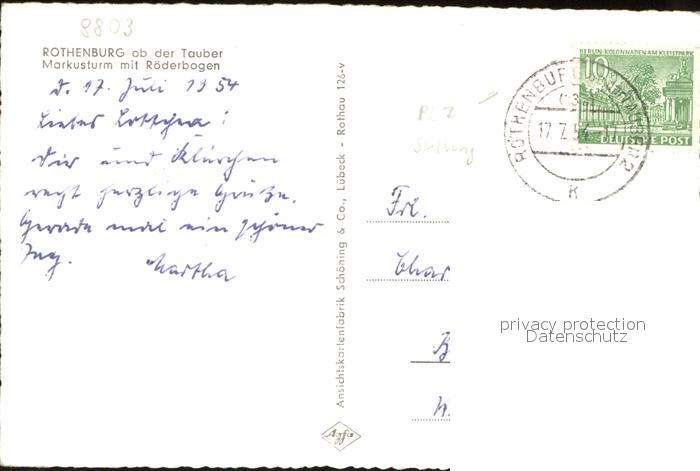 8803
ROTHENBURG ob der Tauber
Markusturm mit Röderbogen
d. 17. Juli 1954
Liebes Lottchen!
Dir und Klärchen
recht herzliche Grüße.
Gerade mal ein schöner
Tag. Martha
Ansichtskartenfabrik Schöning & Co., Lübeck - Rothau 126-v
PLZ
Stellung
BERLIN-KOLONNADEN AM KLEISTPARK
10
DEUTSCHE POST
ROTHENBURG
17.7.54
K
Frl.
Char
B
W.
privacy protection
Datenschutz
Agfa